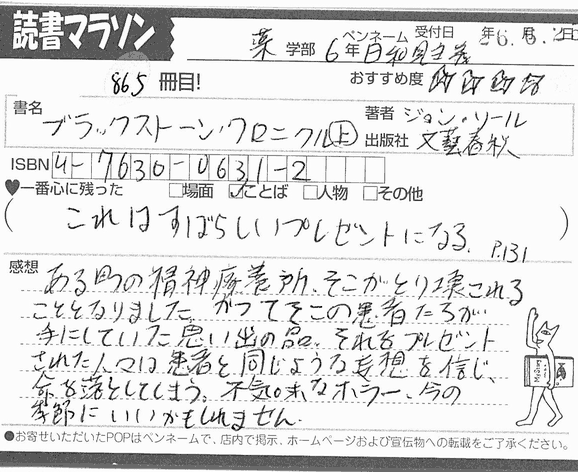 読書マラソン
薬 学部 6年 ペンネーム 日和見主義 受付日 年 月 日
865 冊目! おすすめ度
書名 ブラックストーン・クロニクル 上
著者 ジョン・ソール
出版社 文藝春秋
ISBN 4-7630-0631-2
♥一番心に残った □場面 ☑ことば □人物 □その他
(これはすばらしいプレゼントになる。 P.131)
感想
ある町の精神療養所、そこがとり壊される
こととなりました。かつてそこの患者たちが
手にしていた思い出の品、それをプレゼント
された人々は患者と同じような妄想を信じ、
命を落としてしまう。不気味なホラー、今の
季節にいいかもしれません。
●お寄せいただいたPOPはペンネームで、店内で掲示、ホームページおよび宣伝物への転載をご了承ください。